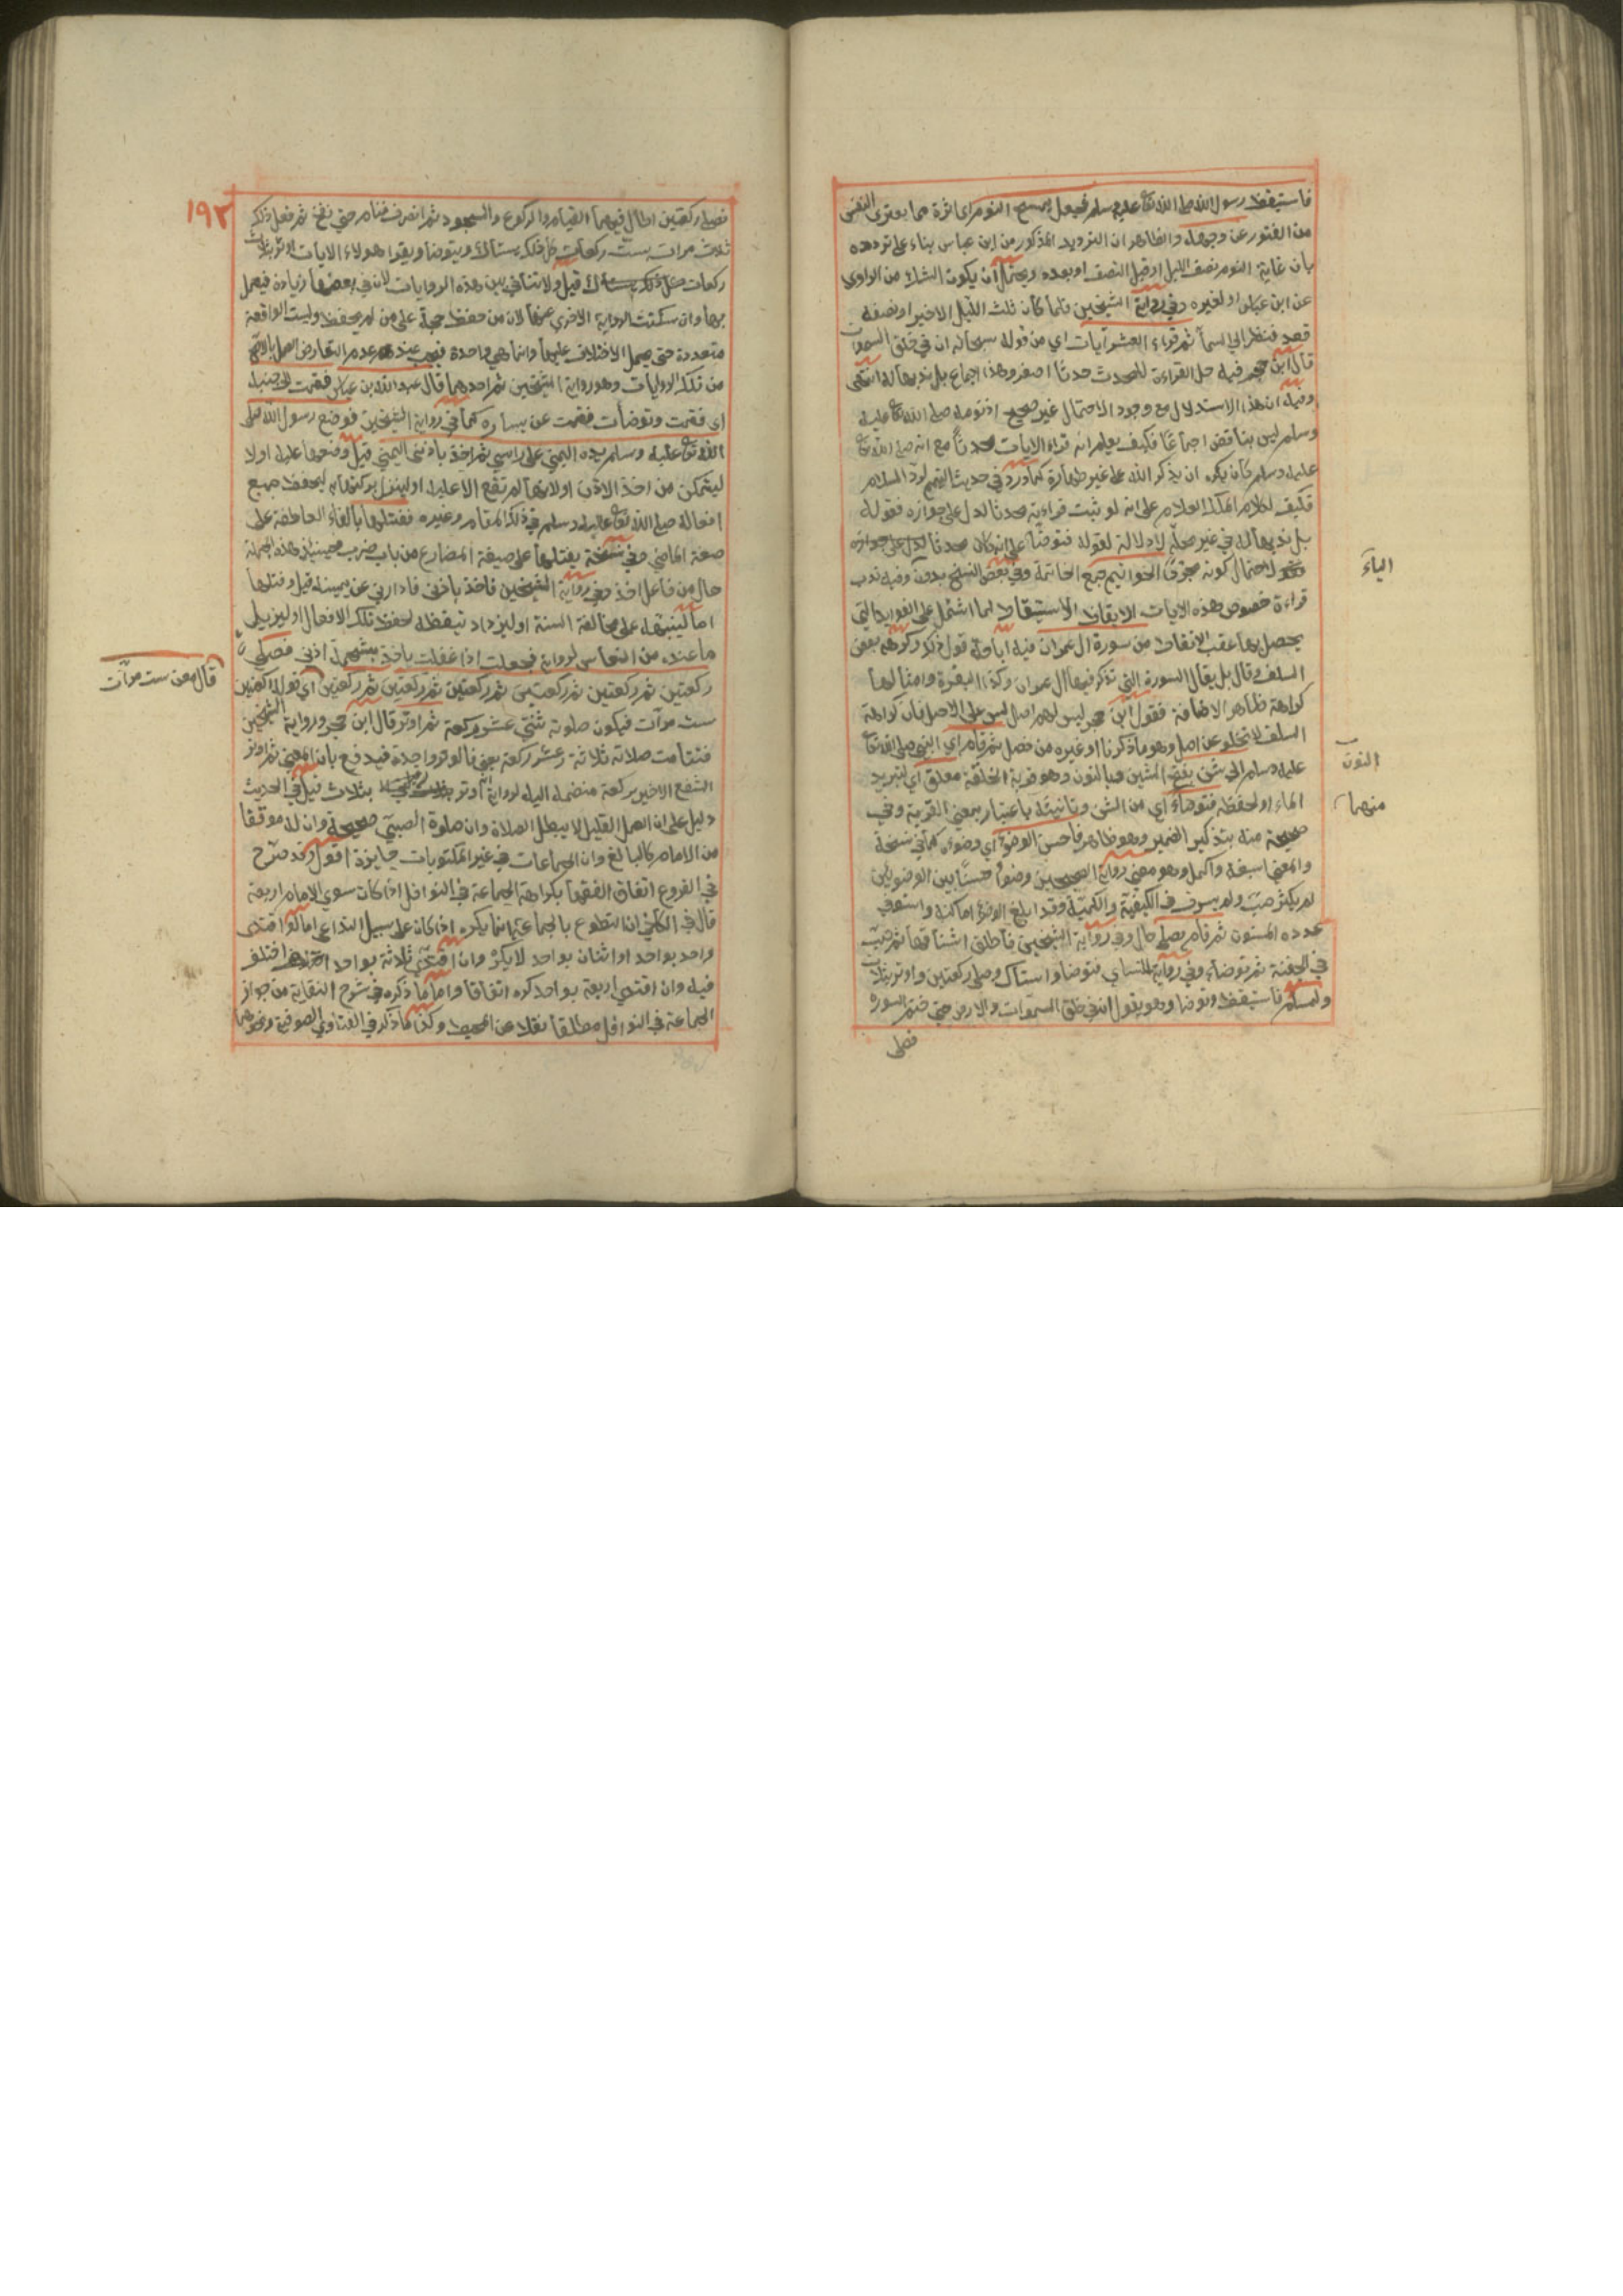 فاستيقظ رسول الله صلى الله تع عليه وسلم فجعل يمسح النوم اي اثره مما يعتري النفس
من الفتور عن وجهه والظاهر ان الترديد المذكور من ابن عباس بناء على تردده
بان غاية النوم نصف الليل او قبل النصف او بعده ويحتمل ان يكون الشك من الراوي
عن ابن عباس او لغيره وفي رواية الشيخين فلما كان ثلث الليل الاخير او نصفه
قعد فنظر الي السمآ ثم قراء العشر آيات اي من قوله سبحانه ان في خلق السموات
قال ابن حجر فيه حل القراءة للمحدث حدثا اصغر وهذا اجماع بل ندبها له انتهى
وفيه ان هذا الاستدلال مع وجود الاحتمال غير صحيح اذ نومه صلى الله تع عليه
وسلم ليس بناقض اجماعًا فكيف يعلم انه قراء الايات محدثًا مع انه صلى الله تع
عليه وسلم كان يكره ان يذكر الله على غير طهارة كما ورد في حديث التيمم لرد السلام
فكيف لكلام الملك العلام على انه لو ثبت قراءته محدثا لدل على جوازه فقوله
بل ندبها له في غير محله لا دلالة لقوله فتوضأ على انه كان محدثا لدل على جوازه
لاحتمال كونه جمع الخاتمة وفي بعض النسخ بدون وفيه ندب
قراءة خصوص هذه الايات الايقاظ الاستيقاظ لما اشتمل على الفوايد التي
يحصل بها عقب الانقاظ من سورة ال عمران فيه اباحة قول ذكر وكرهه بعض
السلف وقال بل يقال السورة التي تذكر فيها ال عمران وكذا البقرة وامثالها
كراهة ظاهر الاضافة فقول ابن حجر ليس لهم اصل ليس على الاصل فان كراهة
السلف لا تخلو عن اصل وهو ما ذكرنا او غيره من فصل ثم قام اي النبي صلى الله تع
عليه وسلم الى شن بفتح الشين فبالنون وهو قربة الخلقة معلق اي لتبريد
الماء او لحفظه فتوضاء اي من الشن وتانيثه باعتبار معني القربة وفي
صحيحة منه بتذكير الضمير وهو ظاهر فاحسن الوضوء اي وضوءه كما في نسخة
والمعني اسبغه واكمله وهو معني رواية الصحيحين وضوءًا حسنًا بين الوضوئين
لم يكثر صبّ ولم يسرف في الكيفية والكمية وقد ابلغ الوضوء اماكنه واستوفى
عدده المسنون ثم قام يصلي حال وفي رواية الشيخين فاطلق اشناقها ثم صبّ
في الجفنة ثم توضاء وفي رواية للنساي فتوضا واستاك وصلى ركعتين واوتر بثلاث
ولمسلم فاستيقظ وتوضا وهو يقول ان في خلق السموات والارض حتى ختم السورة
فصلى
الياء
النون
منهما
١٩٢
فصلى ركعتين اطال فيهما القيام والركوع والسجود ثم انصرف فنام حتى نفخ ثم فعل ذلك
ثلاث مرات بست ركعات كل ذلك يستاك ويتوضا ويقرا هولاء الايات ثم اوتر بثلاث
ركعات قيل ولا تنافي بين هذه الروايات لان في بعضها زيادة فيعمل
بها وان سكتت الرواية الاخري عنها لان من حفظ حجة على من لم يحفظ وليست الواقعة
متعددة حتى يحمل الاختلاف عليها وانما هي واحدة فيجب عند عدم التعارض العمل بالاصح
من تلك الروايات وهو رواية الشيخين ثم احدهما قال عبد الله بن عباس فقمت الى جنبه
اي فقمت وتوضأت فقمت عن يساره كما في رواية الشيخين فوضع رسول الله صلى
الله تع عليه وسلم يده اليمني على راسي ثم اخذ باذني اليمني قيل وضعها عليه اولا
ليتمكن من اخذ الاذن او لانها لم تقع الا عليه او لينزل بركتها به ليحفظ جميع
افعاله صلى الله تع عليه وسلم في ذلك المقام وغيره ففتلها بالفاء العاطفة على
صيغة الماضي وفي نسخة يفتلها على صيغة المضارع من باب ضرب فحينئذ هذه الجملة
حال من فاعل اخذ وفي رواية الشيخين فاخذ باذني فادارني عن يمينه قيل وفتلها
اما لينبهه على مخالفة السنة او ليزداد تيقظه لحفظ تلك الافعال او ليزيل
ما عنده من النعاس لرواية فجعلت اذا غفلت ياخذ بشحمة اذني فصلي
ركعتين ثم ركعتين ثم ركعتين ثم ركعتين ثم ركعتين ثم ركعتين اي قوله ركعتين
ست مرآت فيكون صلوته ثنتي عشر ركعة ثم اوتر قال ابن حجر ورواية الشيخين
فتتامت صلاته ثلاثة عشر ركعة يعني فالوتر واحدة فيدفع بان المعني ثم اوتر
الشفع الاخير بركعة منضمة اليه لرواية ثم اوتر بثلاث قيل في الحديث
دليل على ان العمل القليل لا يبطل الصلاة وان صلوة الصبي صحيحة وان له موقفا
من الامام كالبالغ وان الجماعات في غير المكتوبات جايزة اقول وقد صرّح
في الفروع اتفاق الفقهاء بكراهة الجماعة في النوافل اذا كان سوي الامام اربعة
قال في الكافي ان التطوع بالجماعة انما يكره اذا كان على سبيل التداعي اما لو اقتدى
واحد بواحد او اثنان بواحد لا يكره وان اقتدي ثلاثة بواحد اختلف
فيه وان اقتدي اربعة بواحد كره اتفاقا واما ما ذكره في شرح النقاية من جواز
الجماعة في النوافل مطلقا نقلا عن المحيط وكذا ما ذكر في الفتاوي الصوفية ونحوهما
قال معن ست مرآت